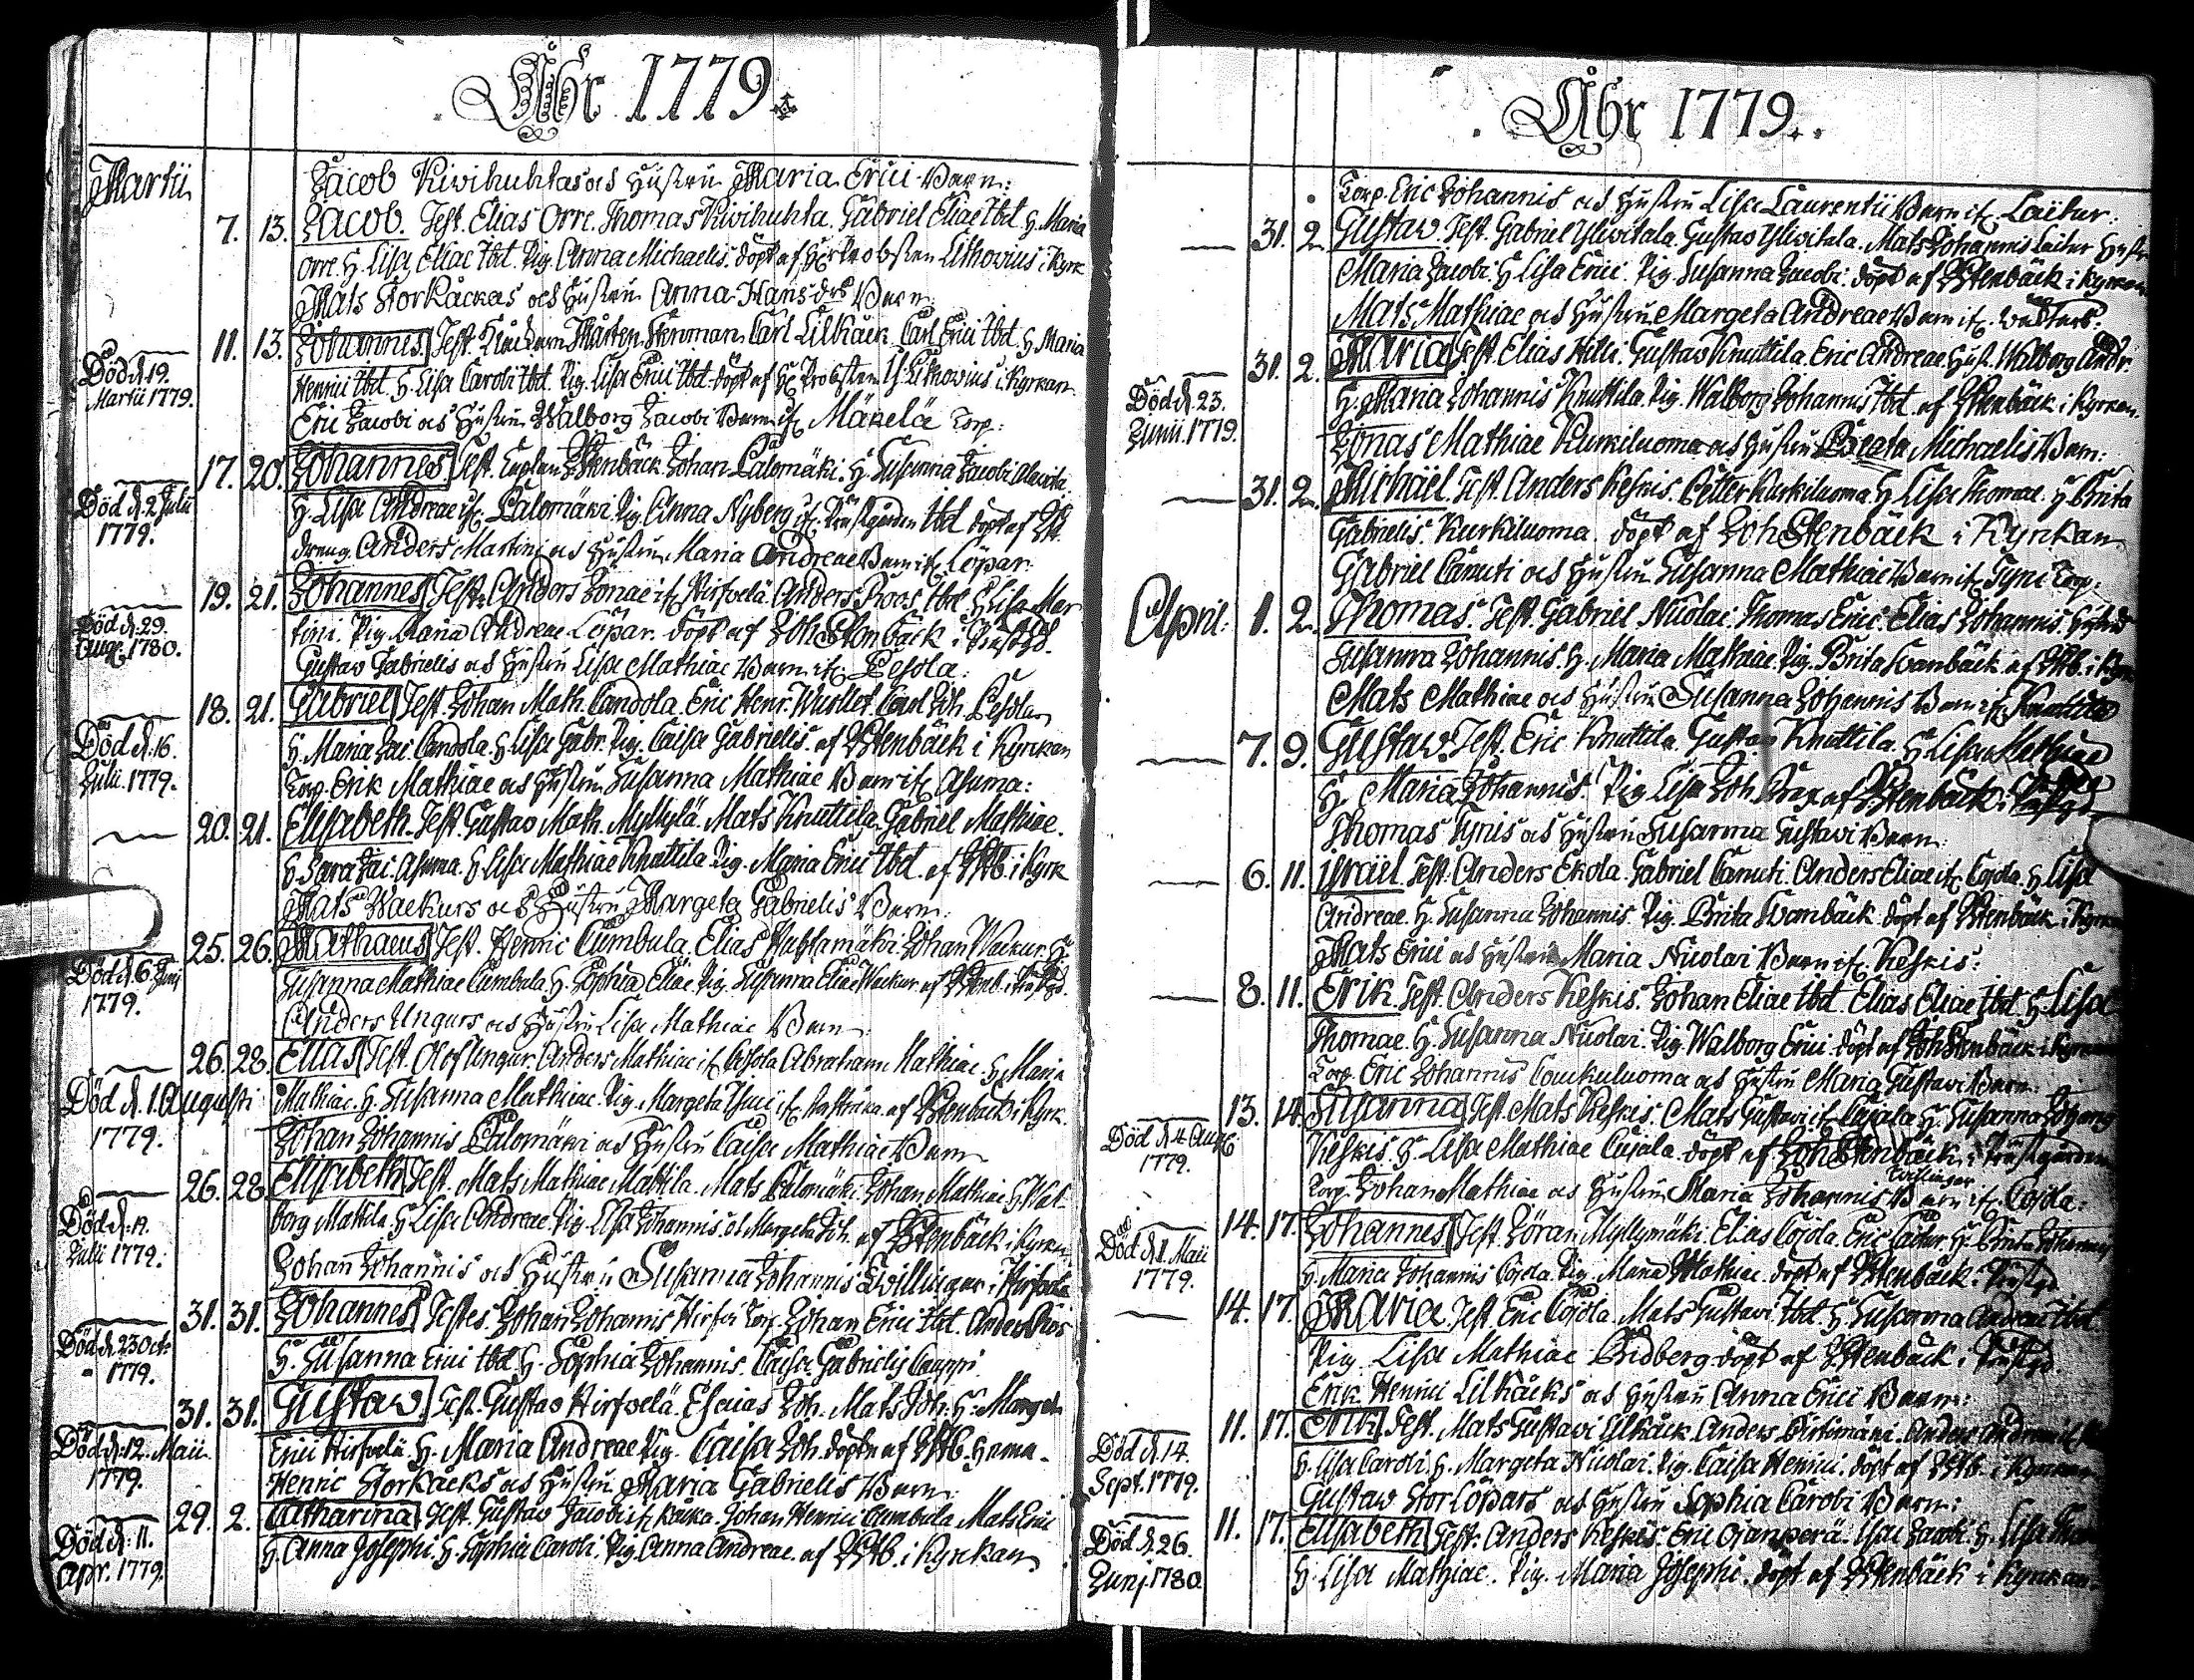 Åhr 1779.
Martii
Jacob Kiwihuhtas och Hustru Maria Erici Barn:
7. 13. Jacob. Test. Elias Orre. Thomas Kiwihuhta. Gabriel Eliae ibd. H. Maria
Orre. H. Lisa Eliae ibd. Pig. Anna Michaelis. döpt af Probsten Lithovius i Kyrk
Mats Storkåckas och Hustru Anna Hans dr Barn:
11. 13. Johannes. Test. Mårten Stenman. Carl Lilkåck. Carl Erici ibd. H. Maria
Död d. 19. Martii 1779.
Henrici ibd. H. Lisa Caroli ibd. Pig. Lisa Erici ibd. döpt af Probsten Lithovius i Kyrkan
Eric Jacobi och Hustru Walborg Jacobi Barn if. Mäkelä Torp:
17. 20. Johannes Test. Caplan Stenbäck. Johan Palomäki. H. Susanna Jacobi
Död d. 2 Julii 1779.
H. Lisa Andreae if. Palomäki. Pig. Anna Nyberg if. Prästgården ibd. döpt af
dreng Anders Martini och Hustru Maria Andreae Barn if. Löpar:
19. 21. Johannes Test. Anders Jonae if. Hirfvelä. Anders Roos ibd. H. Lisa Mar
Död d. 29. Aug. 1780.
tini. Pig. Maria Andreae Löpar. döpt af Joh Stenbäck i
Gustav Gabrielis och Hustru Lisa Mathiae Barn if. Pesola:
18. 21. Gabriel Test. Johan Math. Candola. Eric Henr. Carl Joh. Pesola
Död d. 16. Julii 1779.
H. Maria Jac. Candola. H. Lisa Gabr. Pig. Caisa Gabrielis. af Stenbäck i Kyrkan
Torp. Erik Mathiae och Hustru Susanna Mathiae Barn if. Asuma:
20. 21. Elisabeth. Test. Gustav Math. Myllylä. Mats Knuttila. Gabriel Mathiae.
H. Sara Jac. Asuma. H. Lisa Mathiae Knuttila. Pig. Maria Erici ibd. af Stb. i Kyrk
Mats Wackurs och Hustru Margeta Gabrielis Barn:
25. 26. Mathaeus Test. Henric Cumbula. Elias Johan Wackur. H.
Död d. 6. Junj 1779.
Susanna Mathiae Cumbula. H. Sophia Eliae. Pig. Susanna Eliae Wackur. af Stenb. i
Anders Ungurs och Hustru Lisa Mathiae Barn:
26. 28. Elias Test. Olof Ungur. Anders Mathiae if. Abraham Mathiae. H. Maria
Död d. 1. Augusti 1779.
Mathiae. H. Susanna Mathiae. Pig. Margeta af Stenbäck i Kyrk.
Johan Johannis Palomäki och Hustru Caisa Mathiae Barn
26. 28. Elisabeth Test. Mats Mathiae Mattila. Mats Palomäki. Johan Mathiae. H. Wal-
Död d. 17. Julii 1779.
borg Mattila. H. Lisa Andreae. Pig. Lisa Johannis af Stenbäck i Kyrkan
Johan Johannis och Hustru Susanna Johannis Twillingar i Hirfvelä
31. 31. Johannes Testes. Johan Johannis Hirfvi Torp. Johan Erici ibd. Anders Roos
Död d. 23 Octr 1779.
H. Susanna Erici ibd. H. Sophia Johannis. Caisa Gabrielis Cauppi
31. 31. Gustaw. Test. Gustav Hirfvelä. Esaias Joh. Mats Joh. H. Margeta
Död d. 12. Maii 1779.
Erici Hirfvelä. H. Maria Andreae. Pig. Caisa Joh. döpte af Stb. hema.
Henric Storkåcks och Hustru Maria Gabrielis Barn:
29. 2. Catharina Test. Gustav Jacobi if. Johan Henrici Cumbula. Mats Erici
Död d. 11. Apr. 1779.
H. Anna Josephi. H. Sophia Caroli. Pig. Anna Andreae. af Stb. i Kyrkan
Åhr 1779.
Torp. Eric Johannis och Hustru Lisa Laurentii Barn if. Laitur:
31. 2. Gustaw. Test. Gabriel Yliwitala. Gustav Yliwitala. Mats Johannis Laitur Hustr
Maria Jacobi. H. Lisa Erici. Pig. Susanna Jacobi. döpt af Stenbäck i kyrkan
Mats Mathiae och Hustru Margeta Andreae Barn if.
31. 2. Maria Test. Elias Hilli. Gustav Knuttila. Eric Andreae. Hust. Walborg Andr.
Död d. 23. Junii. 1779.
H. Maria Johannis Knuttila. Pig. Walborg Johannis ibd. af Stenbäck i Kyrkan.
Jonas Mathiae Kurkiluoma och Hustru Beata Michaelis Barn:
31. 2. Michäel. Test. Anders Keskis. Petter Kurkiluoma. H. Lisa Thomae. H. Brita
Gabrielis. Kurkiluoma. döpt af Joh Stenbäck i Kyrkan
Gabriel Canuti och Hustru Susanna Mathiae Barn if. Tyni Torp:
April. 1. 2. Thomas. Test. Gabriel Nicolai. Thomas Eric. Elias Johannis.
Susanna Johannis. H. Maria Mathiae. Pig. Brita Svanbäck. af Stb. i Kyrk
Mats Mathiae och Hustru Susanna Johannis Barn if. Knuttila
7. 9. Gustaw. Test. Eric Knuttila. Gustav Knuttila. H. Lisa Mathiae
H. Maria Johannis. Pig. Lisa Joh. af Stenbäck i
Thomas Tynis och Hustru Susanna Gustavi Barn:
6. 11. Israel. Test. Anders Ekola. Gabriel Canuti. Anders Eliae if. Cojola. H. Lisa
Andreae. H. Susanna Johannis. Pig. Brita Svanbäck. döpt af Stenbäck i Kyrkan
Mats Erici och Hustru Maria Nicolai Barn if. Keskis:
8. 11. Erik. Test. Anders Keskis. Johan Eliae ibd. Elias Eliae ibd. H. Lisa
Thomae. H. Susanna Nicolai. Pig. Walborg Erici. döpt af Joh Stenbäck i Kyrkan
Torp. Eric Johannis Couckuluoma och Hustru Maria Gustavi Barn:
13. 14. Susanna Test. Mats Keskis. Mats Gustavi if. Cajala. H. Susanna Johannis
Död d. 4 Aug 1779.
Keskis. H. Lisa Mathiae Cajala. döpt af Joh Stenbäck i Prästgården
Torp. Johan Mathiae och Hustru Maria Johannis Twillingar Barn if. Cojola:
14. 17. Johannes Test. Jöran Myllymäki. Elias Cojola. Eric Laitur. H. Brita Johannis
Död d. 1. Maii 1779.
H. Maria Johannis Cojola. Pig. Maria Mathiae. döpt af Stenbäck i Prästgd.
14. 17. Maria. Test. Eric Cojola. Mats Gustavi ibd. H. Susanna Andreae ibd.
Pig. Lisa Mathiae Bridberg döpt af Stenbäck i Prästgd.
Erik Henrici Lilkåcks och Hustru Anna Erici Barn:
11. 17. Erik Test. Mats Gustavi Lilkåck. Anders Pirtimäki. Anders
Död d. 14. Sept. 1779.
H. Lisa Caroli. H. Margeta Nicolai. Pig. Caisa Henrici. döpt af Stb. i Kyrkan
Gustaw Storlöpars och Hustru Sophia Carobi Barn:
11. 17. Elisabeth Test. Anders Keskis. Eric Ojanperä. Isac Jacobi. H. Lisa
Död d. 26. Junj. 1780
H. Lisa Mathiae. Pig. Maria Josephi. döpt af Stenbäck i Kyrkan.